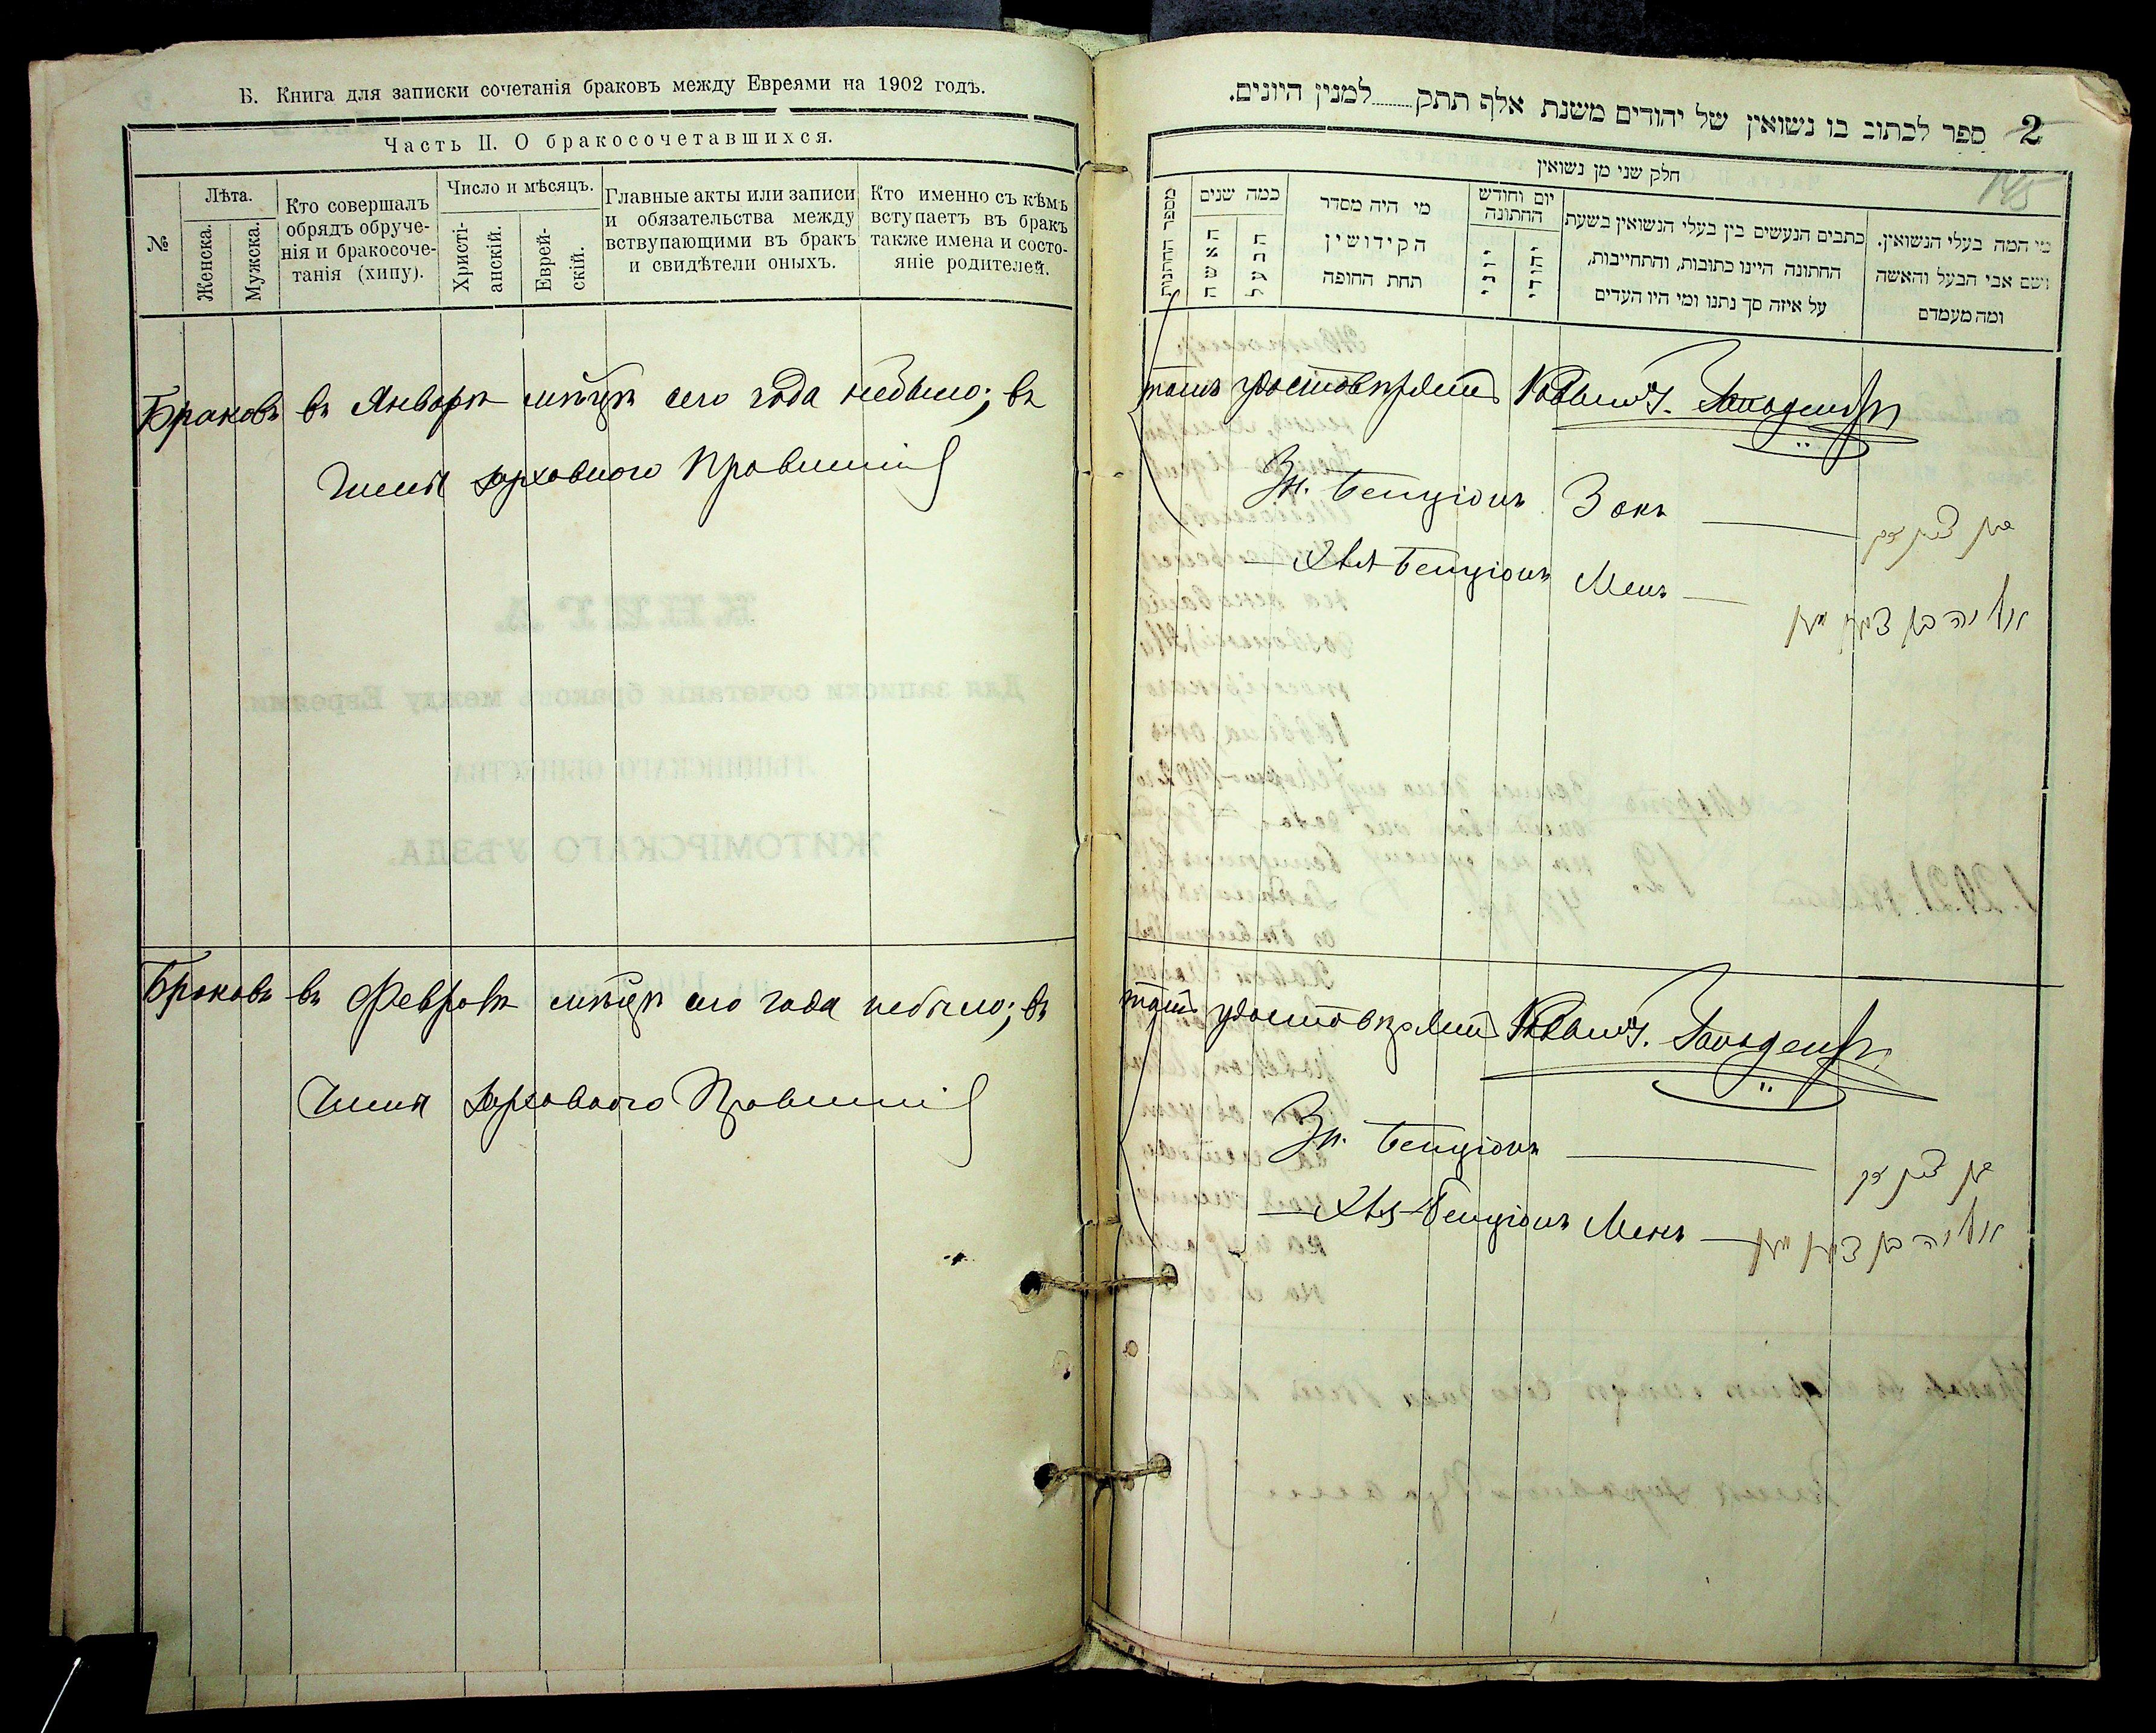 В. Книга для записки сочетанія браковъ между Евреями на 1902 годъ.
Часть II. О бракосочетавшихся.
№
Лѣта.
Женска.
Мужска.
Кто совершалъ
обрядъ обруче-
нія и бракосоче-
танія (хипу).
Число и мѣсяцъ.
Христі-
анскій.
Еврей-
скій.
Главные акты или записи
и обязательства между
вствупающими въ бракъ
и свидѣтели оныхъ.
Кто именно съ кѣмъ
вступаетъ въ бракъ
также имена и состо-
яніе родителей.
Браковъ въ Январѣ мѣсцѣ сего года небыло; въ
Члены духовного Правленія
Браковъ въ Февралѣ мѣсцѣ сего года небыло; въ
Члены духовного Правленія
2 ספר לכתוב בו נשואין של יהודים משנת אלף תתק למנין היונים.
145
חלק שני מן נשואין
מספר החתונות
כמה שנים
האשה
הבעל
מי היה מסדר
הקידושין
תחת החופה
יום וחודש
החתונה
יוני
יהודי
כתבים הנעשים בין בעלי הנשואין בשעת
החתונה היינו כתובות, והתחייבות,
על איזה סך נתנו ומי היו העדים
מי המה בעלי הנשואין.
ושם אבי הבעל והאשה
ומה מעמדם
томъ удостовѣряетъ Раввинъ
Бенціонъ Закъ בן ציון זק
Бенціонъ Менъ אליה בן ציון מען
томъ удостовѣряетъ Раввинъ
Бенціонъ בן ציון זק
Бенціонъ Менъ אליה בן ציון מען